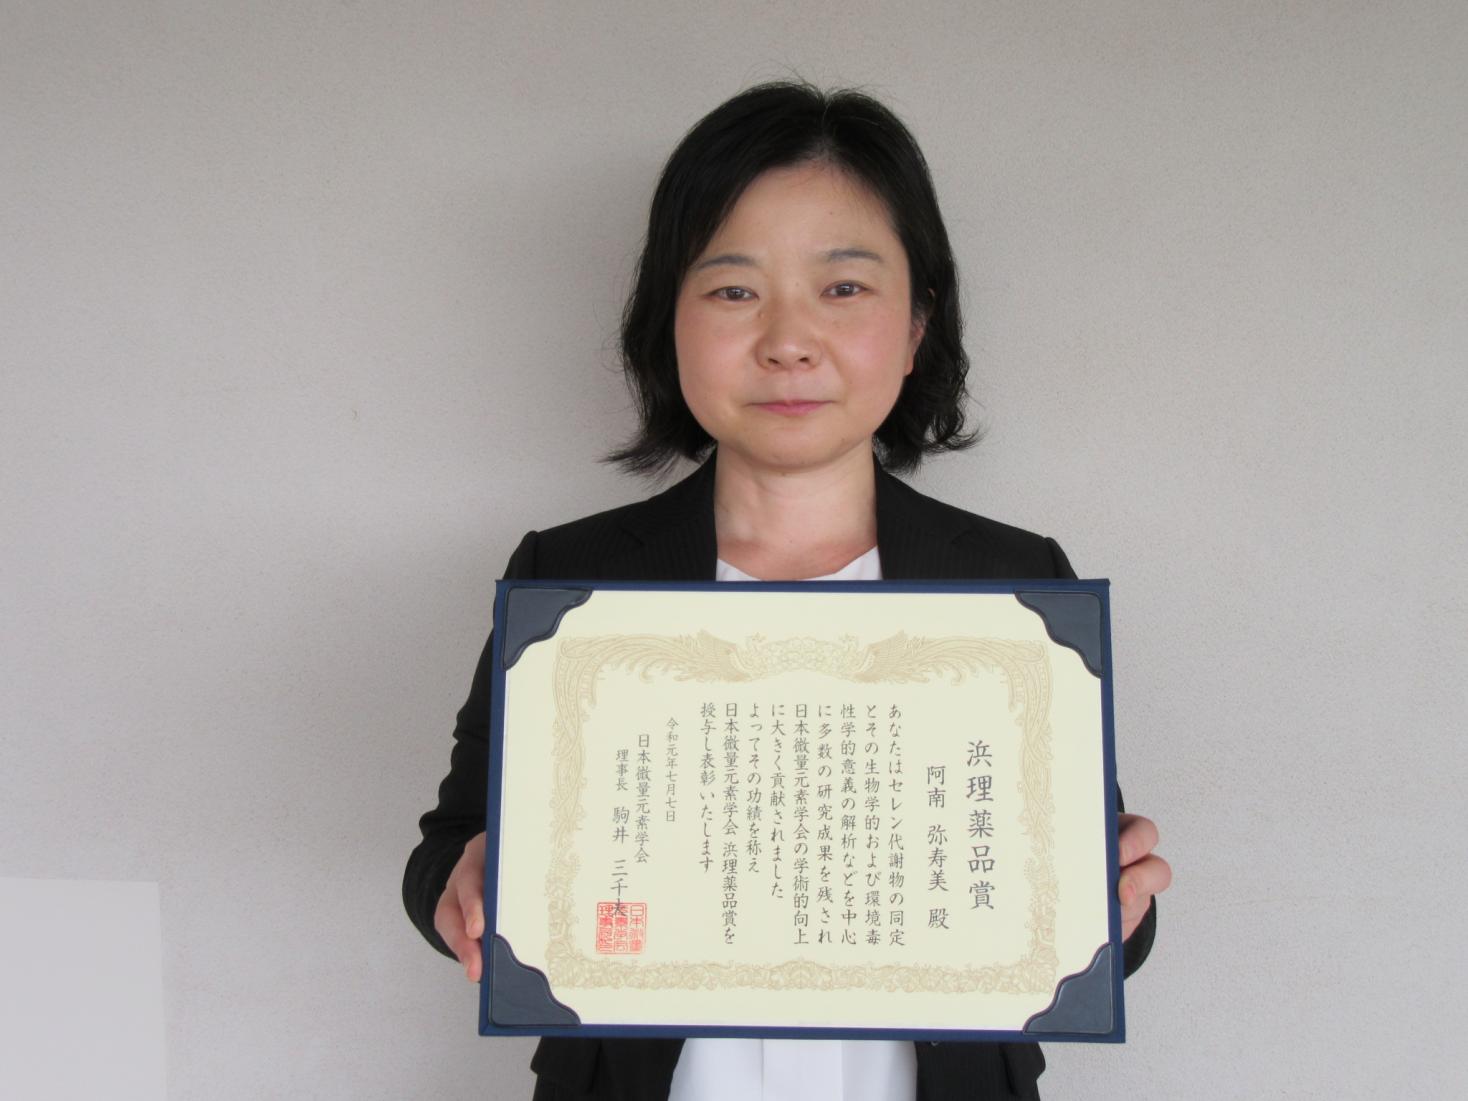 浜理薬品賞
阿南 弥寿美 殿
あなたはセレン代謝物の同定
とその生物学的および環境毒
性学的意義の解析などを中心
に多数の研究成果を残され
日本微量元素学会の学術的向上
に大きく貢献されました
よってその功績を称え
日本微量元素学会 浜理薬品賞を
授与し表彰いたします
令和元年七月七日
日本微量元素学会
理事長 駒井 三千夫